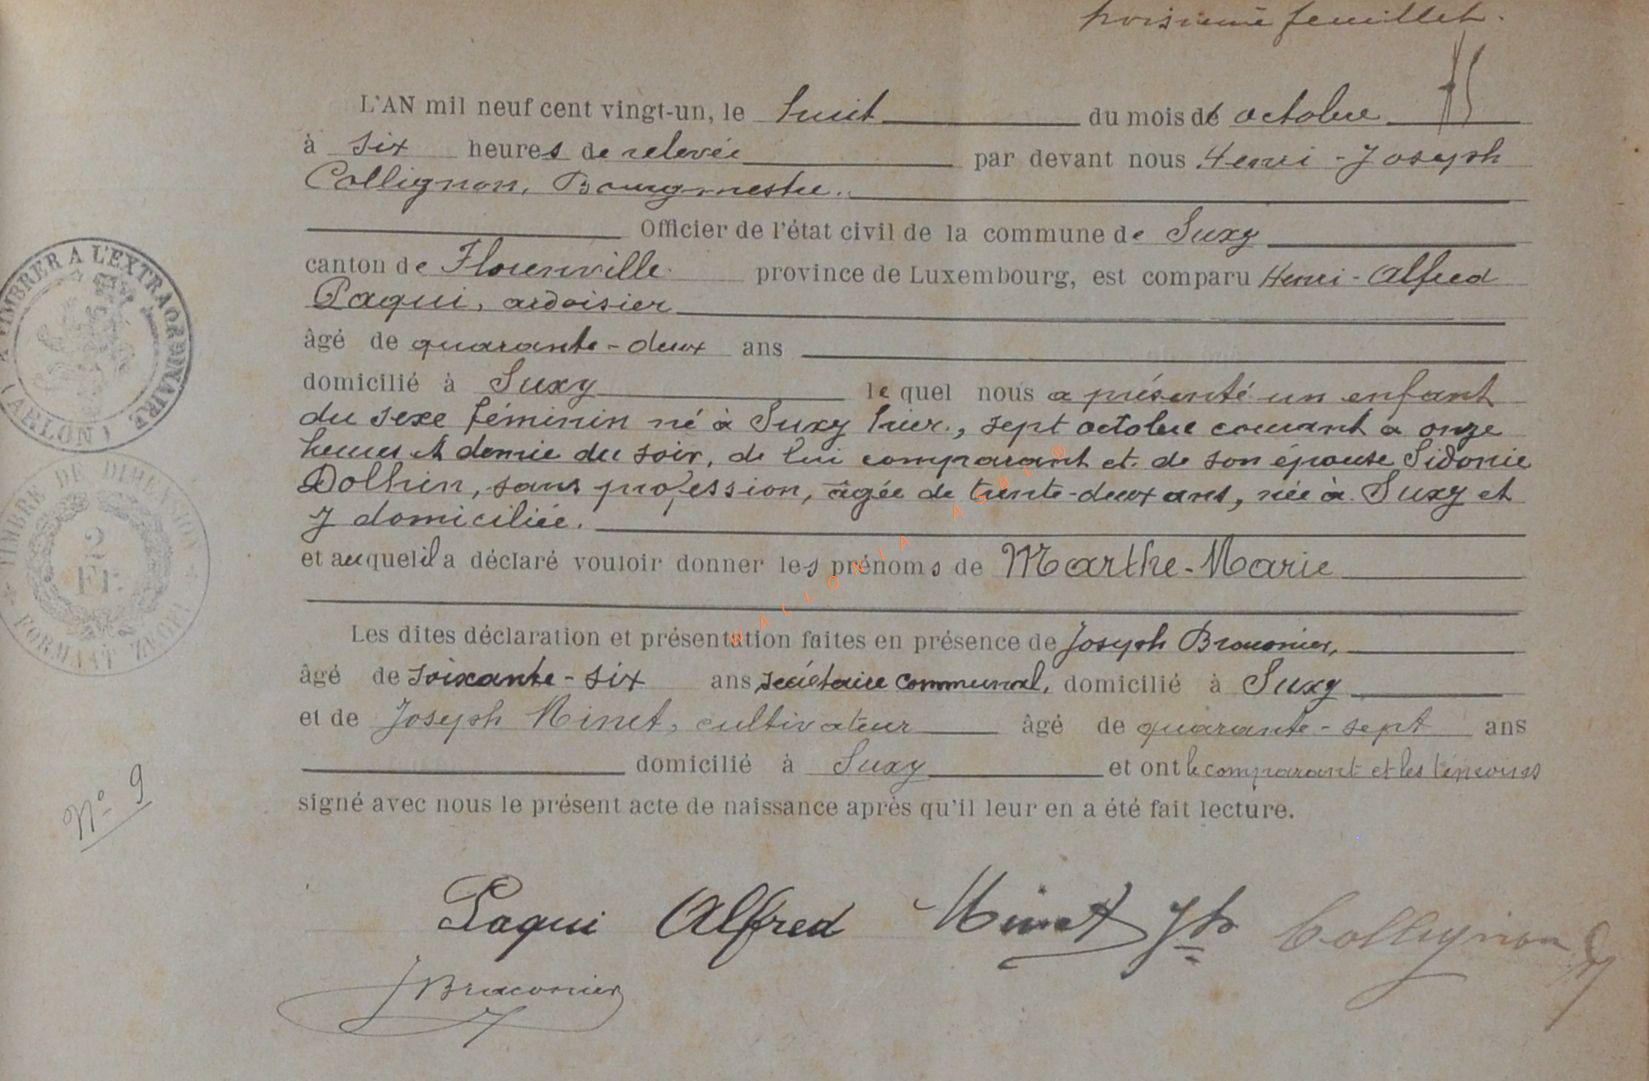 troisième feuillet.
L'AN mil neuf cent vingt-un, le huit du mois de octobre
à six heures de relevée par devant nous Henri-Joseph
Collignon, Bourgmestre.
Officier de l'état civil de la commune de Suxy
canton de Florenville province de Luxembourg, est comparu Henri-Alfred
Paqui, ardoisier
âgé de quarante-deux ans
domicilié à Suxy lequel nous a présenté un enfant
du sexe féminin né à Suxy hier, sept octobre courant à onze
heures et demie du soir, de lui comparant et de son épouse Sidonie
Dolhin, sans profession, âgée de trente-deux ans, née à Suxy et
y domiciliée.
et auquel il a déclaré vouloir donner les prénoms de Marthe-Marie
Les dites déclaration et présentation faites en présence de Joseph Braconier,
âgé de soixante-six ans secrétaire communal, domicilié à Suxy
et de Joseph Ninet, cultivateur âgé de quarante-sept ans
domicilié à Suxy et ont le comparant et les témoins
signé avec nous le présent acte de naissance après qu'il leur en a été fait lecture.
Paqui Alfred Ninet Jph Collignon
JBraconier
A TIMBRER A L'EXTRAORDINAIRE
(ARLON)
TIMBRE DE DIMENSION
2
Fr.
FORMAAT ZEGEL
N° 9
WALLONIA ASBL